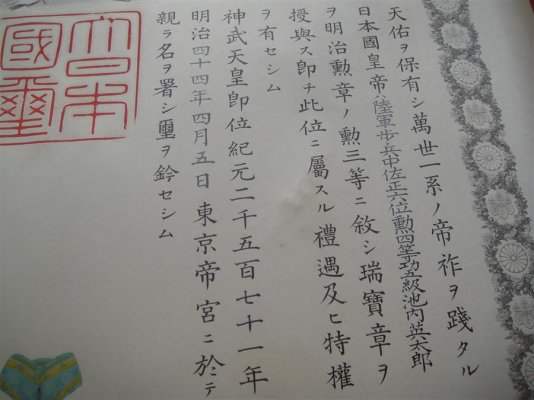 天佑ヲ保有シ萬世一系ノ帝祚ヲ踐タル
日本國皇帝陸軍歩兵中佐正六位勲四等功五級池内英太郎
ヲ明治勲章ノ勲三等ニ敘シ瑞寶章ヲ
授與ス卽チ此位ニ屬スル禮遇及ヒ特權
ヲ有セシム
神武天皇卽位紀元二千五百七十一年
明治四十四年四月五日東京帝宮ニ於テ
親ラ名ヲ署シ璽ヲ鈐セシム
大日本
國璽